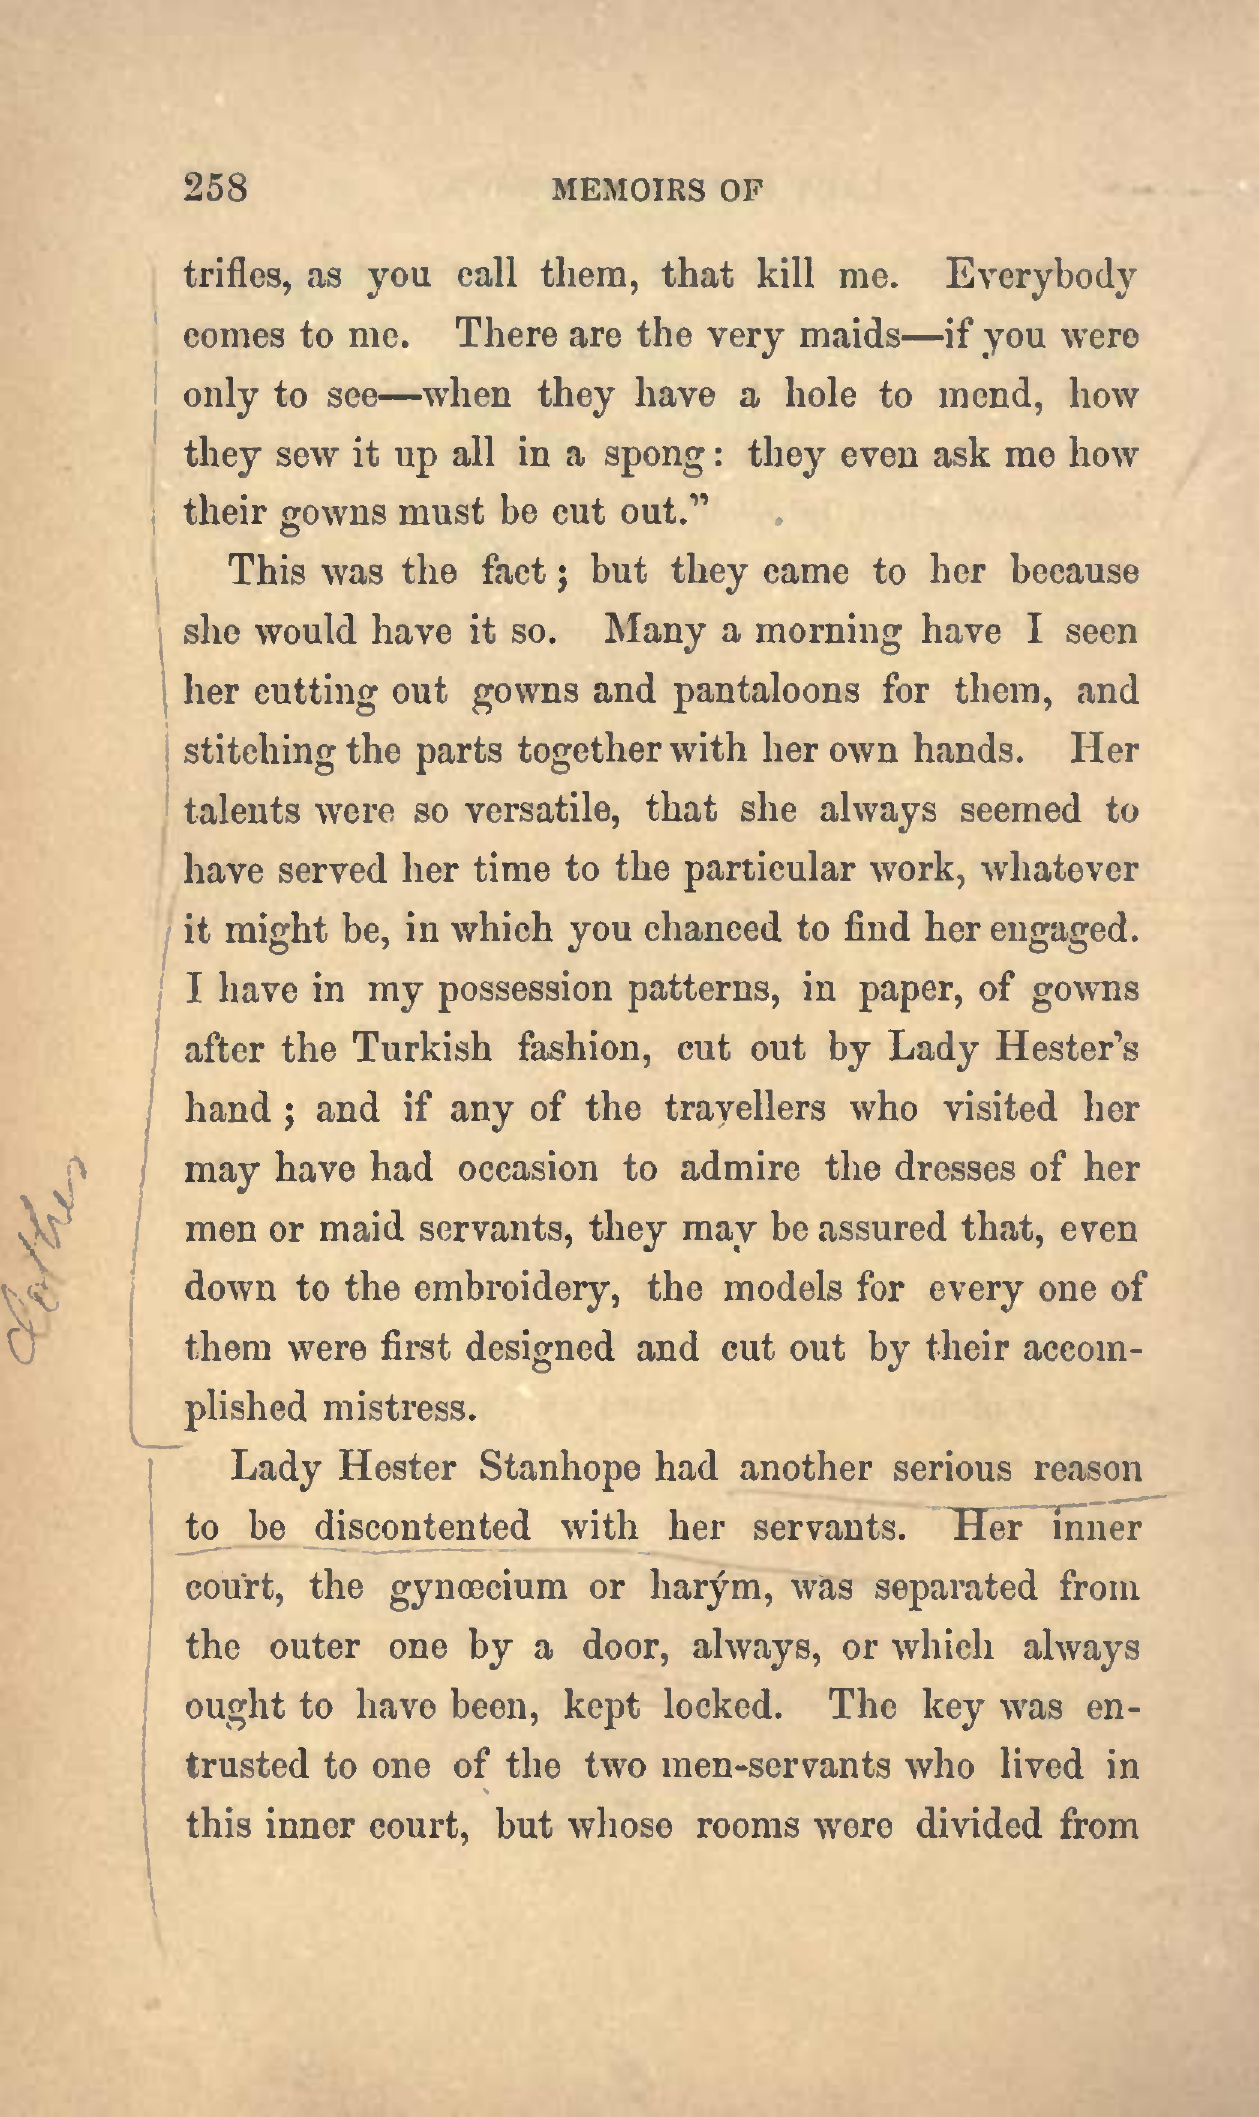 258 MEMOIRS OF
trifles, as you call them, that kill me. Everybody
comes to me. There are the very maids—if you were
only to see—when they have a hole to mend, how
they sew it up all in a spong: they even ask me how
their gowns must be cut out.”
This was the fact; but they came to her because
she would have it so. Many a morning have I seen
her cutting out gowns and pantaloons for them, and
stitching the parts together with her own hands. Her
talents were so versatile, that she always seemed to
have served her time to the particular work, whatever
it might be, in which you chanced to find her engaged.
I have in my possession patterns, in paper, of gowns
after the Turkish fashion, cut out by Lady Hester’s
hand; and if any of the travellers who visited her
may have had occasion to admire the dresses of her
men or maid servants, they may be assured that, even
down to the embroidery, the models for every one of
them were first designed and cut out by their accom-
plished mistress.
Lady Hester Stanhope had another serious reason
to be discontented with her servants. Her inner
court, the gynœcium or harým, was separated from
the outer one by a door, always, or which always
ought to have been, kept locked. The key was en-
trusted to one of the two men-servants who lived in
this inner court, but whose rooms were divided from